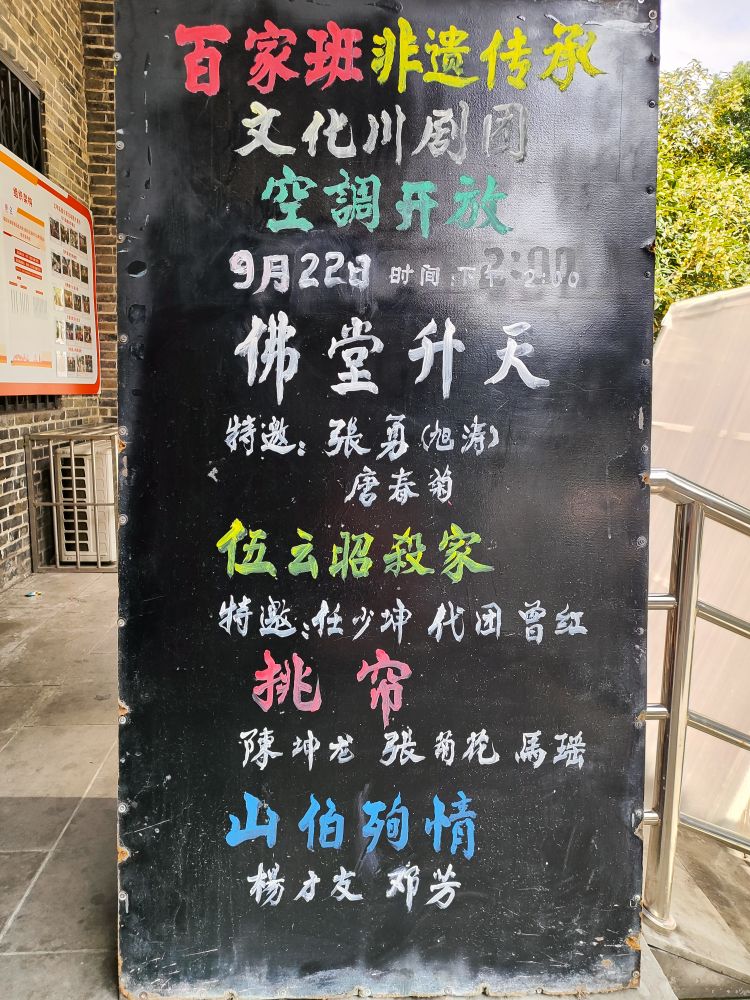 百家班非遗传承
文化川剧团
空調开放
9月22日 时间:下午2:00
佛堂升天
特邀:張勇(旭涛)
唐春菊
伍云昭殺家
特邀:任少坤 代团 曾红
挑帘
陳坤龙 張菊花 馬瑶
山伯殉情
楊才友 邓芳